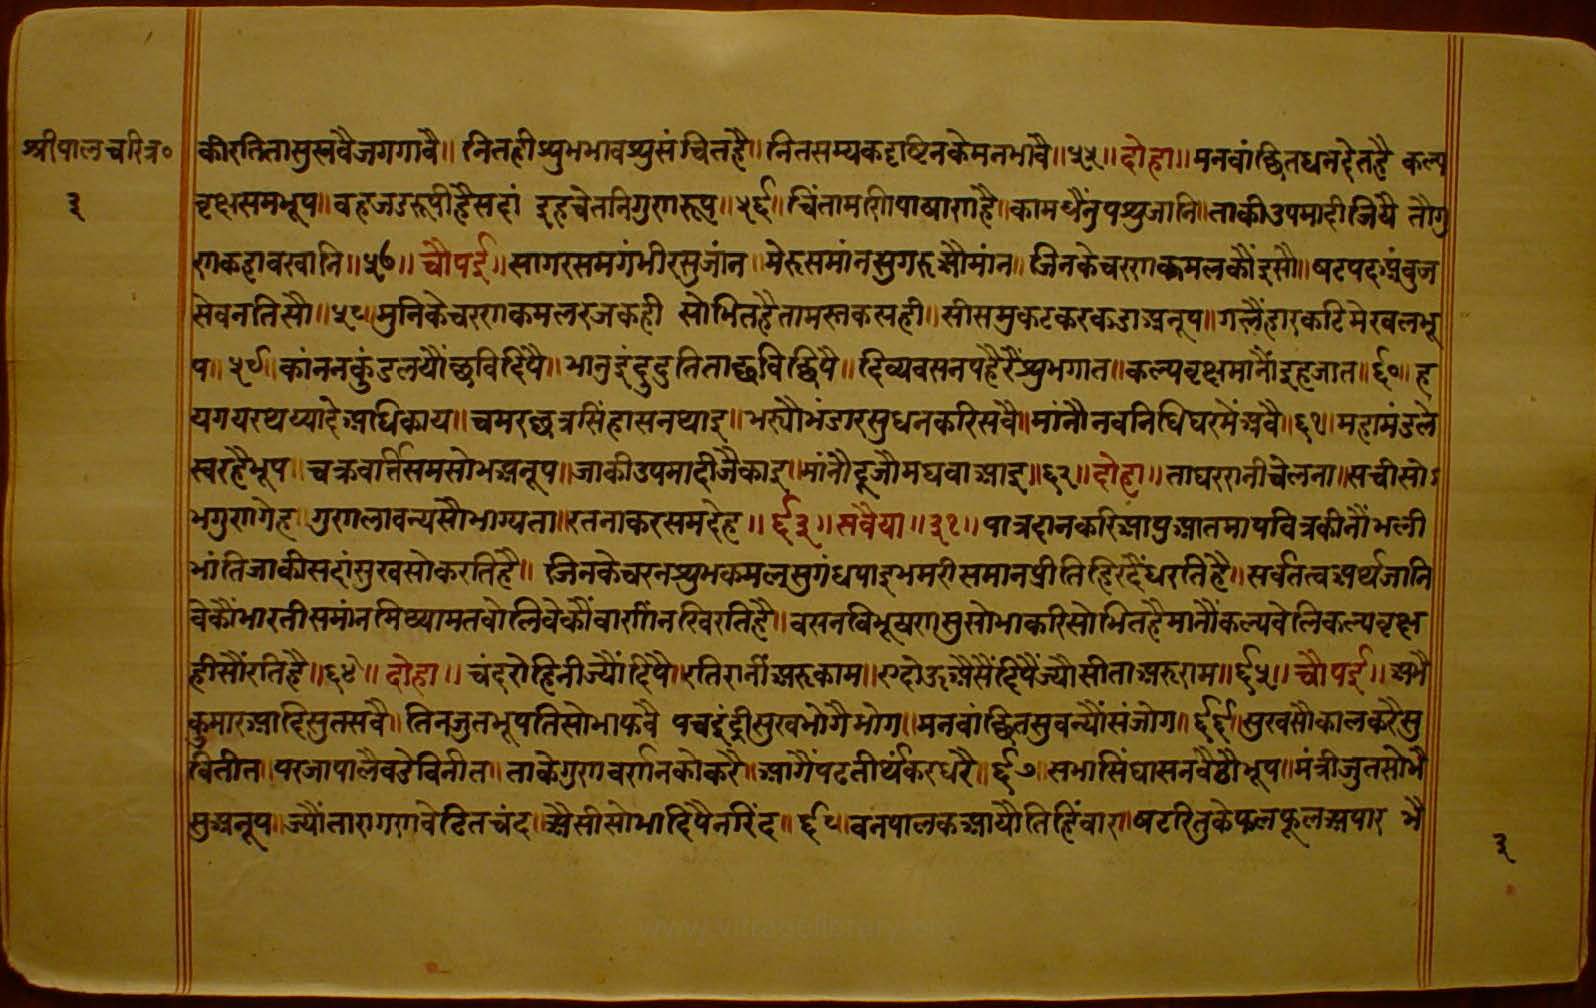 श्रीपालचरित्र०
३
कीरतितासुसवैजगगावै॥ नितहीशुभभावशुसंचितहै॥ नितसम्यकदृष्टिनकेमनभावै॥५५॥ दोहा॥ मनवांछितधनदेतहै कल्प
वृक्षसमभूप॥ वहजडरूपीहैसदां इहचेतनिगुणरूप॥५६॥ चिंतामणिपाषाणहै॥ कामधैंनुपशुजानि॥ ताकीउपमादीजिये तौगु
णकहावखानि॥५७॥ चौपई॥ सागरसमगंभीरसुजांन॥ मेरुसमांनसुगरूऔमांन॥ जिनकेचरणकमलकौंइसौ॥ षटपदअंबुज
सेवनतिसौ॥५८॥ मुनिकेचरणकमलरजकही सोभितहैतामस्तकसही॥ सीसमुकटकरकडाअनूप॥ गलैंहारकटिमेखलभू
प॥५९॥ कांननकुंडलयौंछविदिपै॥ भानुइंदुदुतिताछविछिपै॥ दिव्यवसनपहैरैंशुभगात॥ कल्पवृक्षमानौंइहजात॥६०॥ ह
यगयरथप्यादेअधिकाय॥ चमरछत्रसिंहासनथाइ॥ भर्यौभंडारसुधनकरिसवै॥ मांनौनवनिधिघरमेंअवै॥६१॥ महामंडले
स्वरहैभूप॥ चक्रवर्त्तिसमसोभअनूप॥ जाकीउपमादीजैकाइ॥ मांनौदूजौमघवाआइ॥६२॥ दोहा॥ ताघररानीचेलना॥ सचीसो
भगुणगेह॥ गुणलावन्यसौभाग्यता॥ रतनाकरसमदेह॥६३॥ सवैया॥३१॥ पात्रदानकरिआपुआतमापवित्रकीनौंभली
भांतिजाकीसदांसुखसोकरतिहै॥ जिनकेचरनशुभकमलसुगंधपाइभमरीसमानप्रीतिहिरदैंधरतिहै॥ सर्वतत्वअर्थजानि
वेकौंभारतीसमांनमिथ्यामतवोलिवेकौंवाणींनखिरतिहै॥ वसनविभूषणसुसोभाकरिसोभितहैमानौंकल्पवेलिकल्पवृक्ष
हीसौंरतिहै॥६४॥ दोहा॥ चंदरोहिनीज्यौंदिपै॥ रतिरानींअरुकाम॥ एदोऊअैसैंदिपैंज्यौसीताअरुराम॥६५॥ चौपई॥ अभै
कुमारआदिसुतसवै॥ तिनजुतभूपतिसोभाफवै पचइंद्रीसुखभोगैभोग॥ मनवांछितसुवन्यौंसंजोग॥६६॥ सुखसौकालकरैसु
वितीत॥ परजापालैवडेविनीत॥ ताकेगुणवर्णनकोकरै॥ आगैंपदतीर्थंकरधरै॥६७॥ सभासिंघासनवैठौभूप॥ मंत्रीजुतसोभै
सुअनूप॥ ज्यौंतारागणवेढितचंद॥ अैसीसोभादिपैनरिंद॥६८॥ वनपालकआयौतिहिंवार॥ षटरितुकेफलफूलअपार भै
३